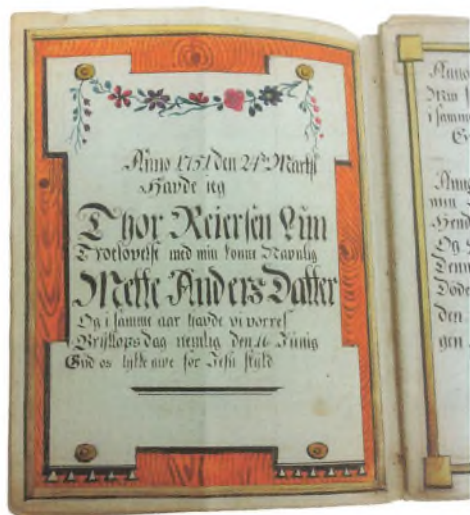 Anno 1751 den 24de Martÿ
Havde ieg
Thor Reiersen Lim
Troelovelse med min konne Navnlig
Mette Anders Datter
Og i samme aar havde vi vorres
Brÿllops dag nemlig den 16 Junÿ
Gud os lykke give for Jesu skyld
Anno
min
i samme
Anno
min
Hend
Og
Denn
Døde
den
gen